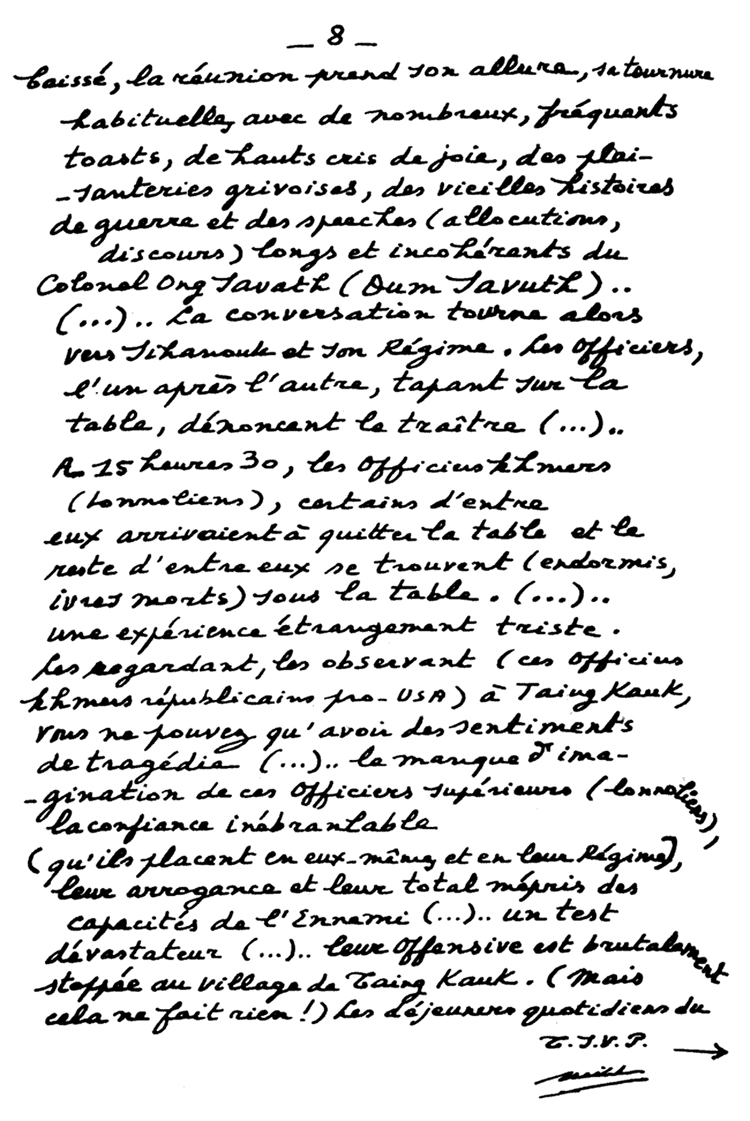 _ 8 _
baissé, la réunion prend son allure, sa tournure
habituelle, avec de nombreux, fréquents
toasts, de hauts cris de joie, des plai-
-santeries grivoises, des vieilles histoires
de guerre et des speeches (allocutions,
discours) longs et incohérents du
Colonel Ong Savath (Oum Savuth)..
(...).. La conversation tourne alors
vers Sihanouk et son Régime. Les Officiers,
l'un après l'autre, tapant sur la
table, dénoncent le traître (...)..
A 15 heures 30, les Officiers khmers
(lonnoliens), certains d'entre
eux arrivaient à quitter la table et le
reste d'entre eux se trouvent (endormis,
ivres morts) sous la table. (...)..
une expérience étrangement triste.
Les regardant, les observant (ces Officiers
khmers républicains pro-USA) à Taing Kauk,
vous ne pouvez qu'avoir des sentiments
de tragédie (...).. le manque d'ima-
-gination de ces Officiers supérieurs (lonnoliens),
la confiance inébranlable
(qu'ils placent en eux-mêmes et en leur Régime),
leur arrogance et leur total mépris des
capacités de l'Ennemi (...).. un test
dévastateur (...).. leur Offensive est brutalement
stoppée au village de Taing Kauk. (Mais
cela ne fait rien!) Les déjeuners quotidiens du
T.S.V.P. →